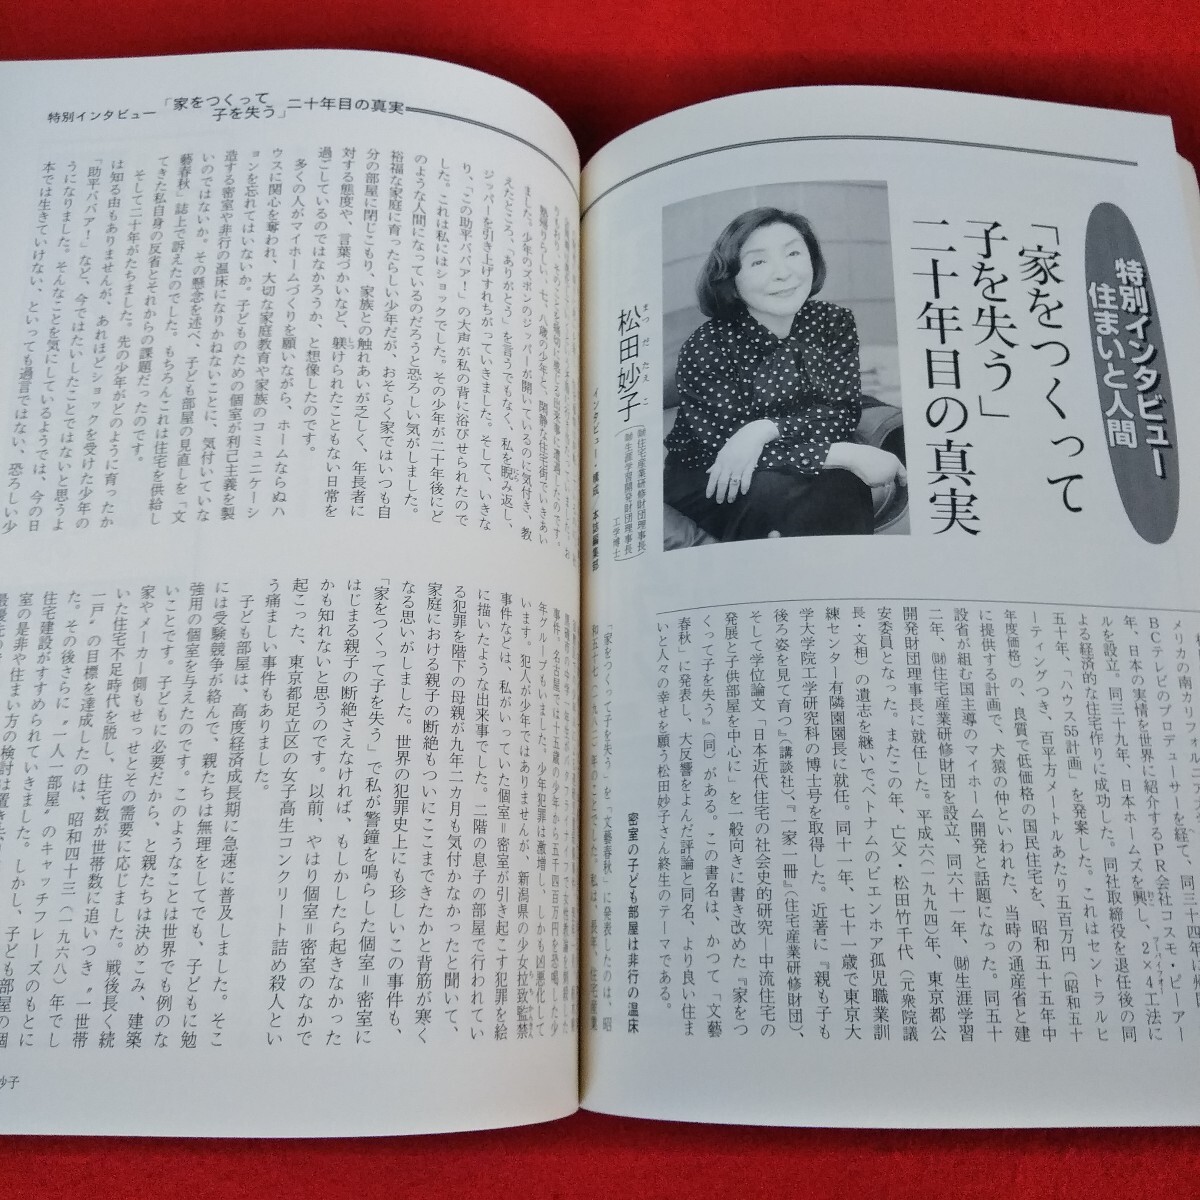 特別インタビュー
住まいと人間
「家をつくって
子を失う」
二十年目の真実
まつだたえこ
松田妙子
㈶住宅産業研修財団理事長
㈶生涯学習開発財団理事長
工学博士
インタビュー・構成　本誌編集部
BCテレビのプロデューサーを経て、同三十四年、
年、日本の実情を世界に紹介するPR会社コスモ・ピーアー
ルを設立。同三十九年、日本ホームズを興し、2×4工法に
よる経済的な住宅作りに成功した。同社取締役を退任後の同
五十年、「ハウス55計画」を発案した。これはセントラルヒ
ーティングつき、百平方メートルあたり五百万円（昭和五十
年度価格）の、良質で低価格の国民住宅を、昭和五十五年中
に提供する計画で、犬猿の仲といわれた、当時の通産省と建
設省が組む国主導のマイホーム開発と話題になった。同五十
二年、㈶住宅産業研修財団を設立、同六十一年、㈶生涯学習
開発財団理事長に就任した。平成六（一九九四）年、東京都公
安委員となった。またこの年、亡父・松田竹千代（元衆院議
長・文相）の遺志を継いでベトナムのビエンホア孤児職業訓
練センター有隣園園長に就任。同十一年、七十一歳で東京大
学大学院工学研究科の博士号を取得した。近著に『親も子も
後ろ姿を見て育つ』（講談社）、『一家一冊』（住宅産業研修財団）、
そして学位論文「日本近代住宅の社会史的研究―中流住宅の
発展と子供部屋を中心に」を一般向きに書き改めた『家をつ
くって子を失う』（同）がある。この書名は、かつて「文藝
春秋」に発表し、大反響をよんだ評論と同名、より良い住ま
いと人々の幸せを願う松田妙子さん終生のテーマである。
密室の子ども部屋は非行の温床
「家をつくって子を失う」を「文藝春秋」に発表したのは、昭
和五十七（一九八二）年のことでした。私は、長年、住宅産業
特別インタビュー「家をつくって子を失う」二十年目の真実
熟帰りらしい、七、八歳の少年と、閑静な住宅街でいきあい
ました。少年のズボンのジッパーが開いているのに気付き、教
えたところ、「ありがとう」を言うでもなく、私を睨み返し、
ジッパーを引き上げすれちがっていきました。そして、いきな
り、「この助平ババア！」の大声が私の背に浴びせられたので
した。これは私にはショックでした。その少年が二十年後にど
のような人間になっているのだろうと恐ろしい気がしました。
裕福な家庭に育ったらしい少年だが、おそらく家ではいつも自
分の部屋に閉じこもり、家族との触れあいが乏しく、年長者に
対する態度や、言葉づかいなど、躾けられたこともない日常を
過ごしているのではなかろうか、と想像したのです。
多くの人がマイホームづくりを願いながら、ホームならぬハ
ウスに関心を奪われ、大切な家庭教育や家族のコミュニケーシ
ョンを忘れてはいないか。子どものための個室が利己主義を製
造する密室や非行の温床になりかねないことに、気付いていな
いのではないか。その懸念を述べ、子ども部屋の見直しを「文
藝春秋」誌上で訴えたのでした。もちろんこれは住宅を供給し
てきた私自身の反省とそれからの課題だったのです。
そして二十年がたちました。先の少年がどのように育ったか
は知る由もありませんが、あれほどショックを受けた少年の
「助平ババア！」など、今ではたいしたことではないと思うよ
うになりました。そんなことを気にしているようでは、今の日
本では生きていけない、といっても過言ではない、恐ろしい少
年グループもいました。少年犯罪は激増し、しかも凶悪化して
います。犯人が少年ではありませんが、新潟県の少女拉致監禁
事件などは、私がいっていた個室＝密室が引き起こす犯罪を絵
に描いたような出来事でした。二階の息子の部屋で行われてい
る犯罪を階下の母親が九年二カ月も気付かなかったと聞いて、
家庭における親子の断絶もついにここまできたかと背筋が寒く
なる思いがしました。世界の犯罪史上にも珍しいこの事件も、
「家をつくって子を失う」で私が警鐘を鳴らした個室＝密室に
はじまる親子の断絶さえなければ、もしかしたら起きなかった
かも知れないと思うのです。以前、やはり個室＝密室のなかで
起こった、東京都足立区の女子高生コンクリート詰め殺人とい
う痛ましい事件もありました。
子ども部屋は、高度経済成長期に急速に普及しました。そこ
には受験競争が絡んで、親たちは無理をしてでも、子どもに勉
強用の個室を与えたのです。このようなことは世界でも例のな
いことです。子どもに必要だから、と親たちは決めこみ、建築
家やメーカー側もせっせとその需要に応じました。戦後長く続
いた住宅不足時代を脱し、住宅数が世帯数に追いつき〝一世帯
一戸〟の目標を達成したのは、昭和四十三（一九六八）年でし
た。その後さらに〝一人一部屋〟のキャッチフレーズのもとに
住宅建設がすすめられていきました。しかし、子ども部屋の個
室の是非や住まい方の検討は置き
妙子